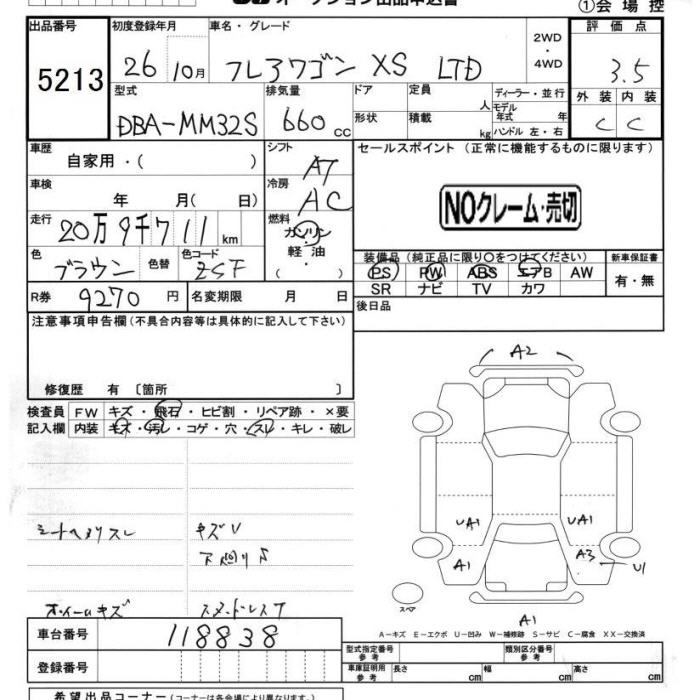 ①会場控
出品番号 初度登録年月 車名・グレード 2WD ・ 4WD 評価点
5213 26 10月 フレアワゴン XS LTD 3.5
型式 排気量 ドア 定員 人 ディーラー・並行 外装 内装
DBA-MM32S 660cc 形状 積載 kg モデル年式 年 ハンドル 左・右 C C
車歴 シフト セールスポイント (正常に機能するものに限ります)
自家用・( ) AT
車検 冷房
年 月( 日) AC NOクレーム・売切
走行 燃料
20万9千711km ガソリン
色 色替 色コード 軽油 装備品 (純正品に限り○をつけてください) 新車保証書
ブラウン ZSF ( ) PS PW ABS エアB AW 有・無
SR ナビ TV カワ
R券 9270円 名変期限 月 日 後日品
注意事項申告欄(不具合内容等は具体的に記入して下さい)
修復歴 有 〔箇所 〕
A2
検査員 FW キズ・飛石・ヒビ割・リペア跡・×要
記入欄 内装 キズ・汚レ・コゲ・穴・スレ・キレ・破レ
キズU
UA1 UA1
A1 A3 U1
スペア
キズ
A1
A-キズ E-エクボ U-凹み W-補修跡 S-サビ C-腐食 XX-交換済
車台番号 118838
型式指定番号 参考 類別区分番号 参考
登録番号 車庫証明用 参考 長さ cm 幅 cm 高さ cm
希望出品コーナー(コーナーは各会場により異なります)